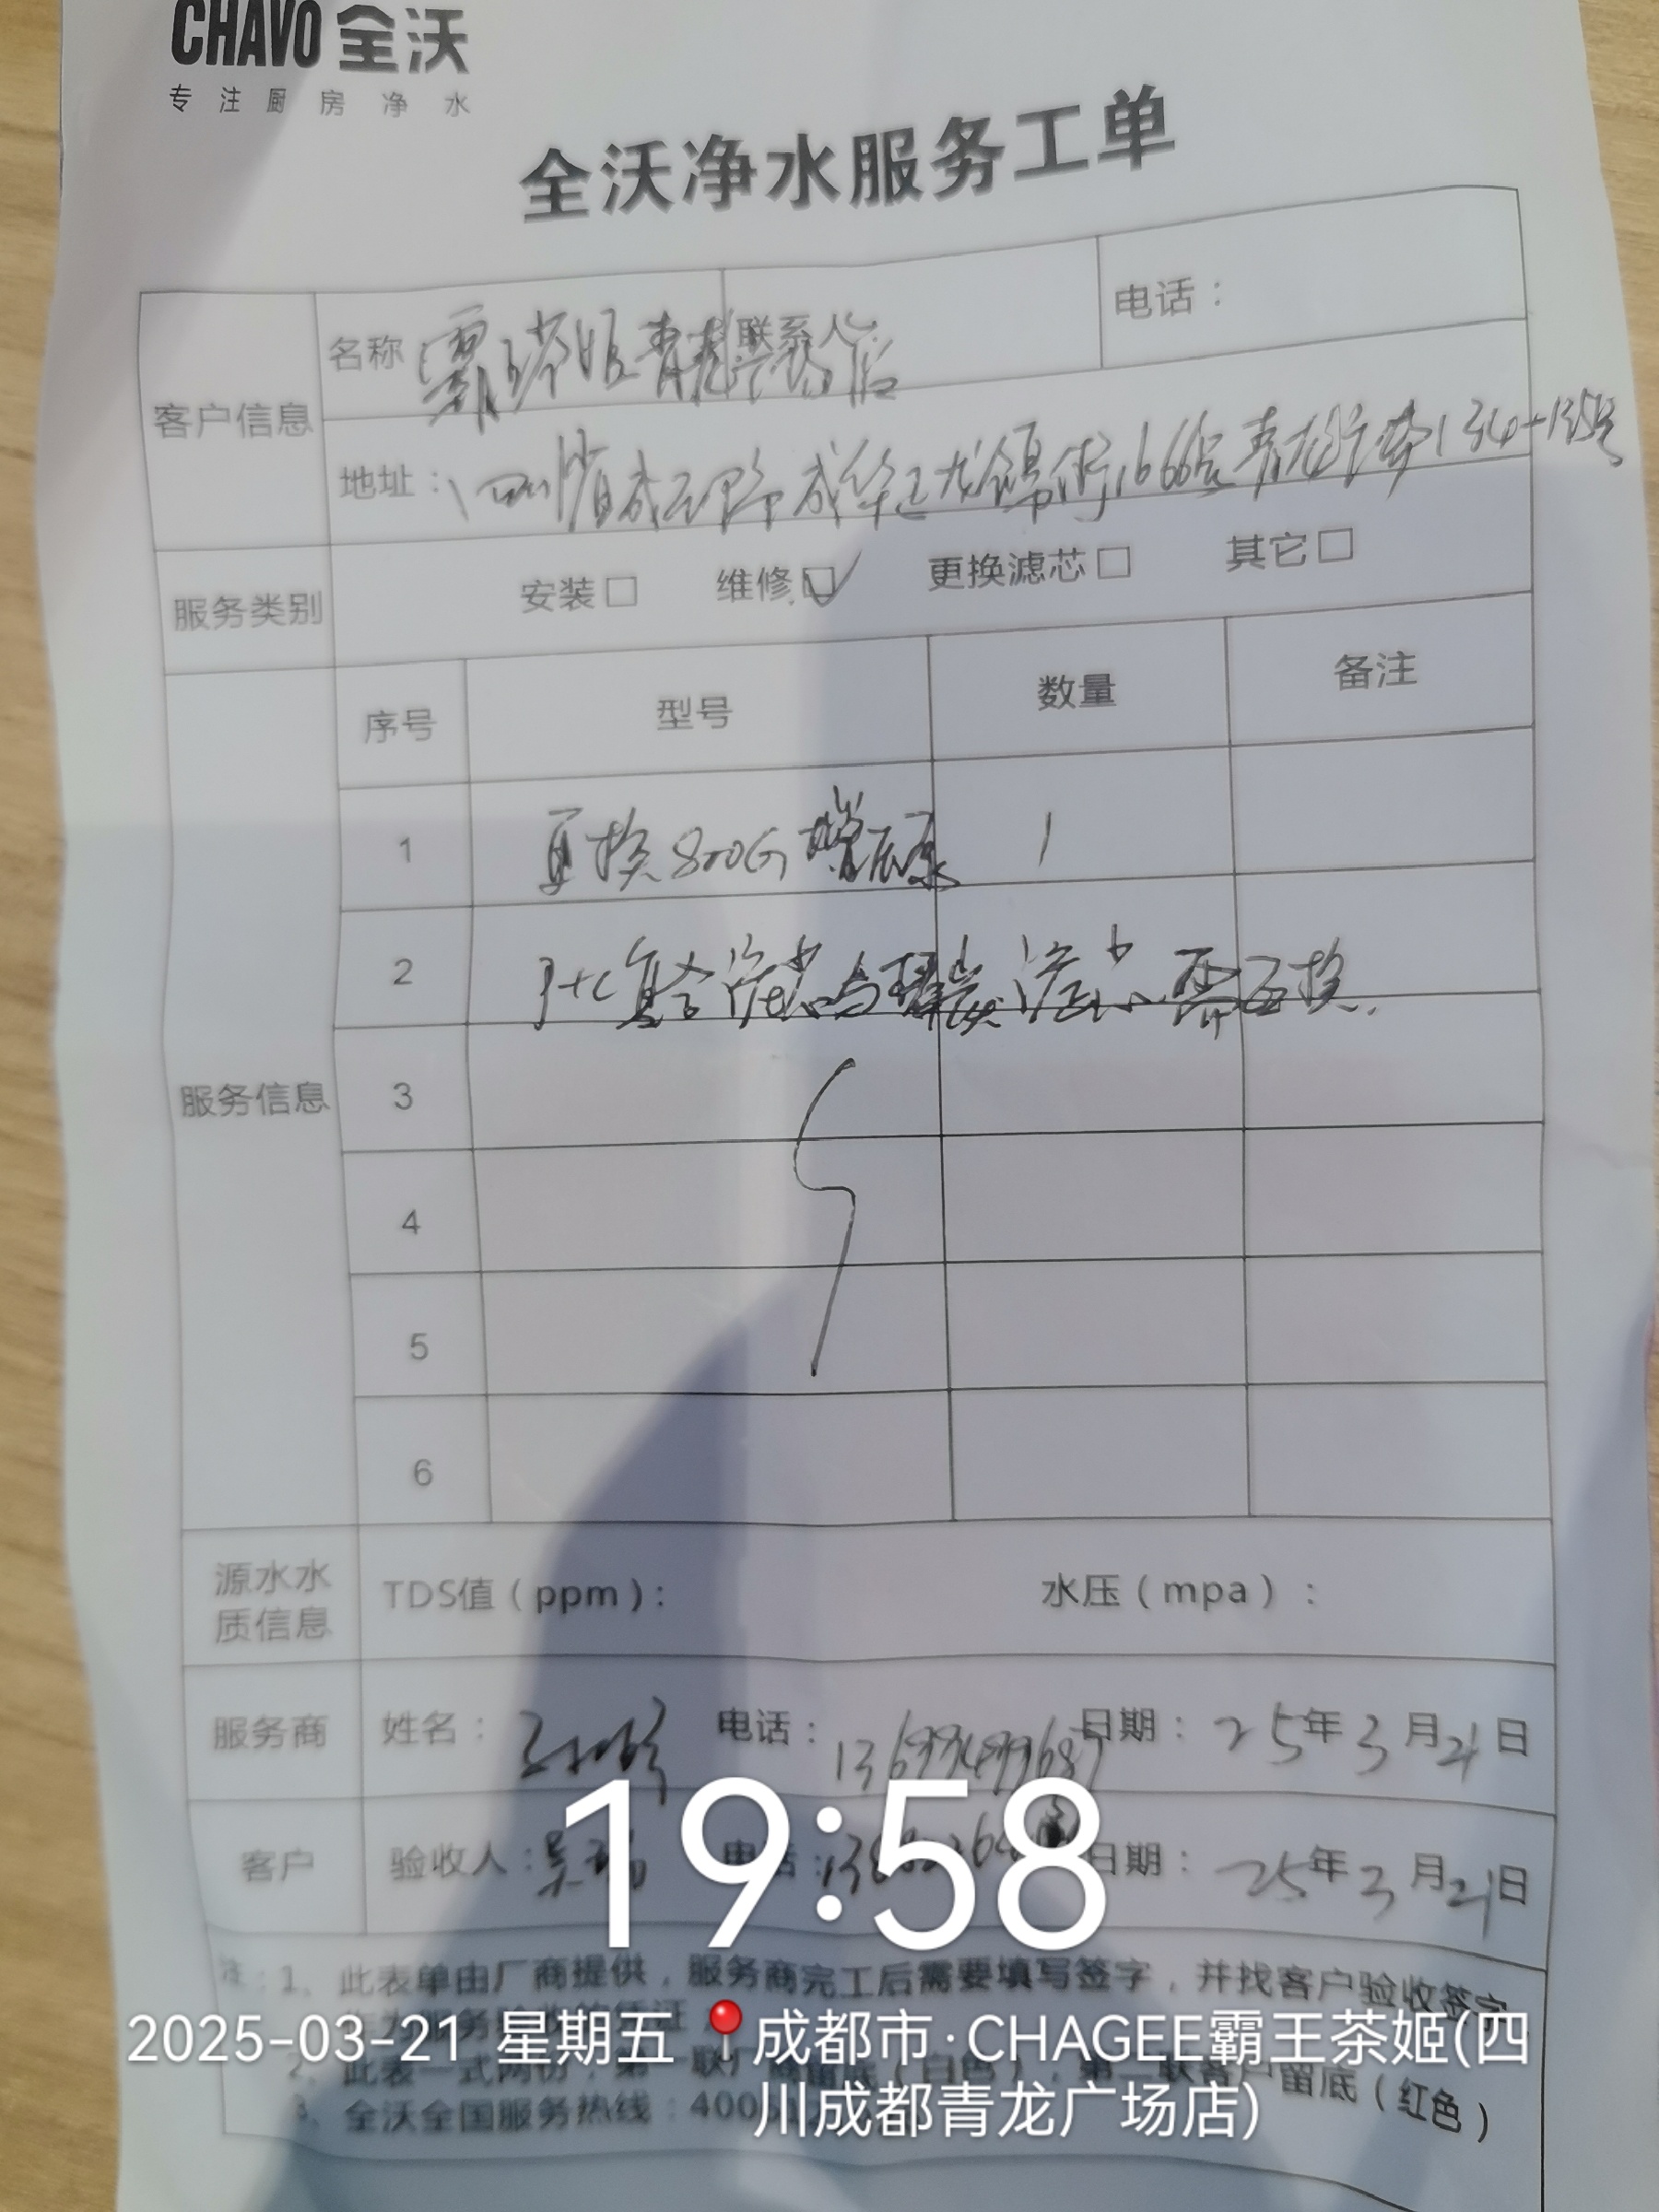 CHAVO 全沃
专注厨房净水
全沃净水服务工单
客户信息
名称 霸王茶姬青龙广场店 联系人
电话：
地址：四川省成都市成华区龙锦街166号青龙广场134-135号
服务类别 安装□ 维修☑ 更换滤芯□ 其它□
服务信息
序号 型号 数量 备注
1 更换800G增压泵 1
2 复合滤芯与 碳滤芯需更换.
3
4
5
6
源水水质信息 TDS值（ppm）： 水压（mpa）：
服务商 姓名： 电话： 日期：25年3月21日
客户 验收人： 电话： 日期：25年3月21日
19:58
注：1、此表单由厂商提供，服务商完工后需要填写签字，并找客户验收签字
2025-03-21 星期五 成都市·CHAGEE霸王茶姬(四
川成都青龙广场店)
2、此表一式两份，第 联厂商留底（白色），第二联客户留底（红色）
3、全沃全国服务热线：400